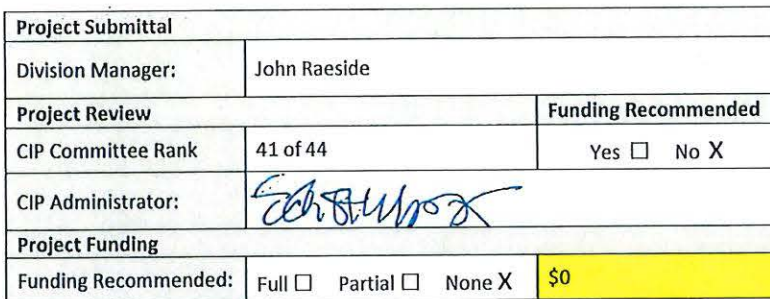 Project Submittal
Division Manager: John Raeside
Project Review Funding Recommended
CIP Committee Rank 41 of 44 Yes ☐ No X
CIP Administrator:
Project Funding
Funding Recommended: Full ☐ Partial ☐ None X $0